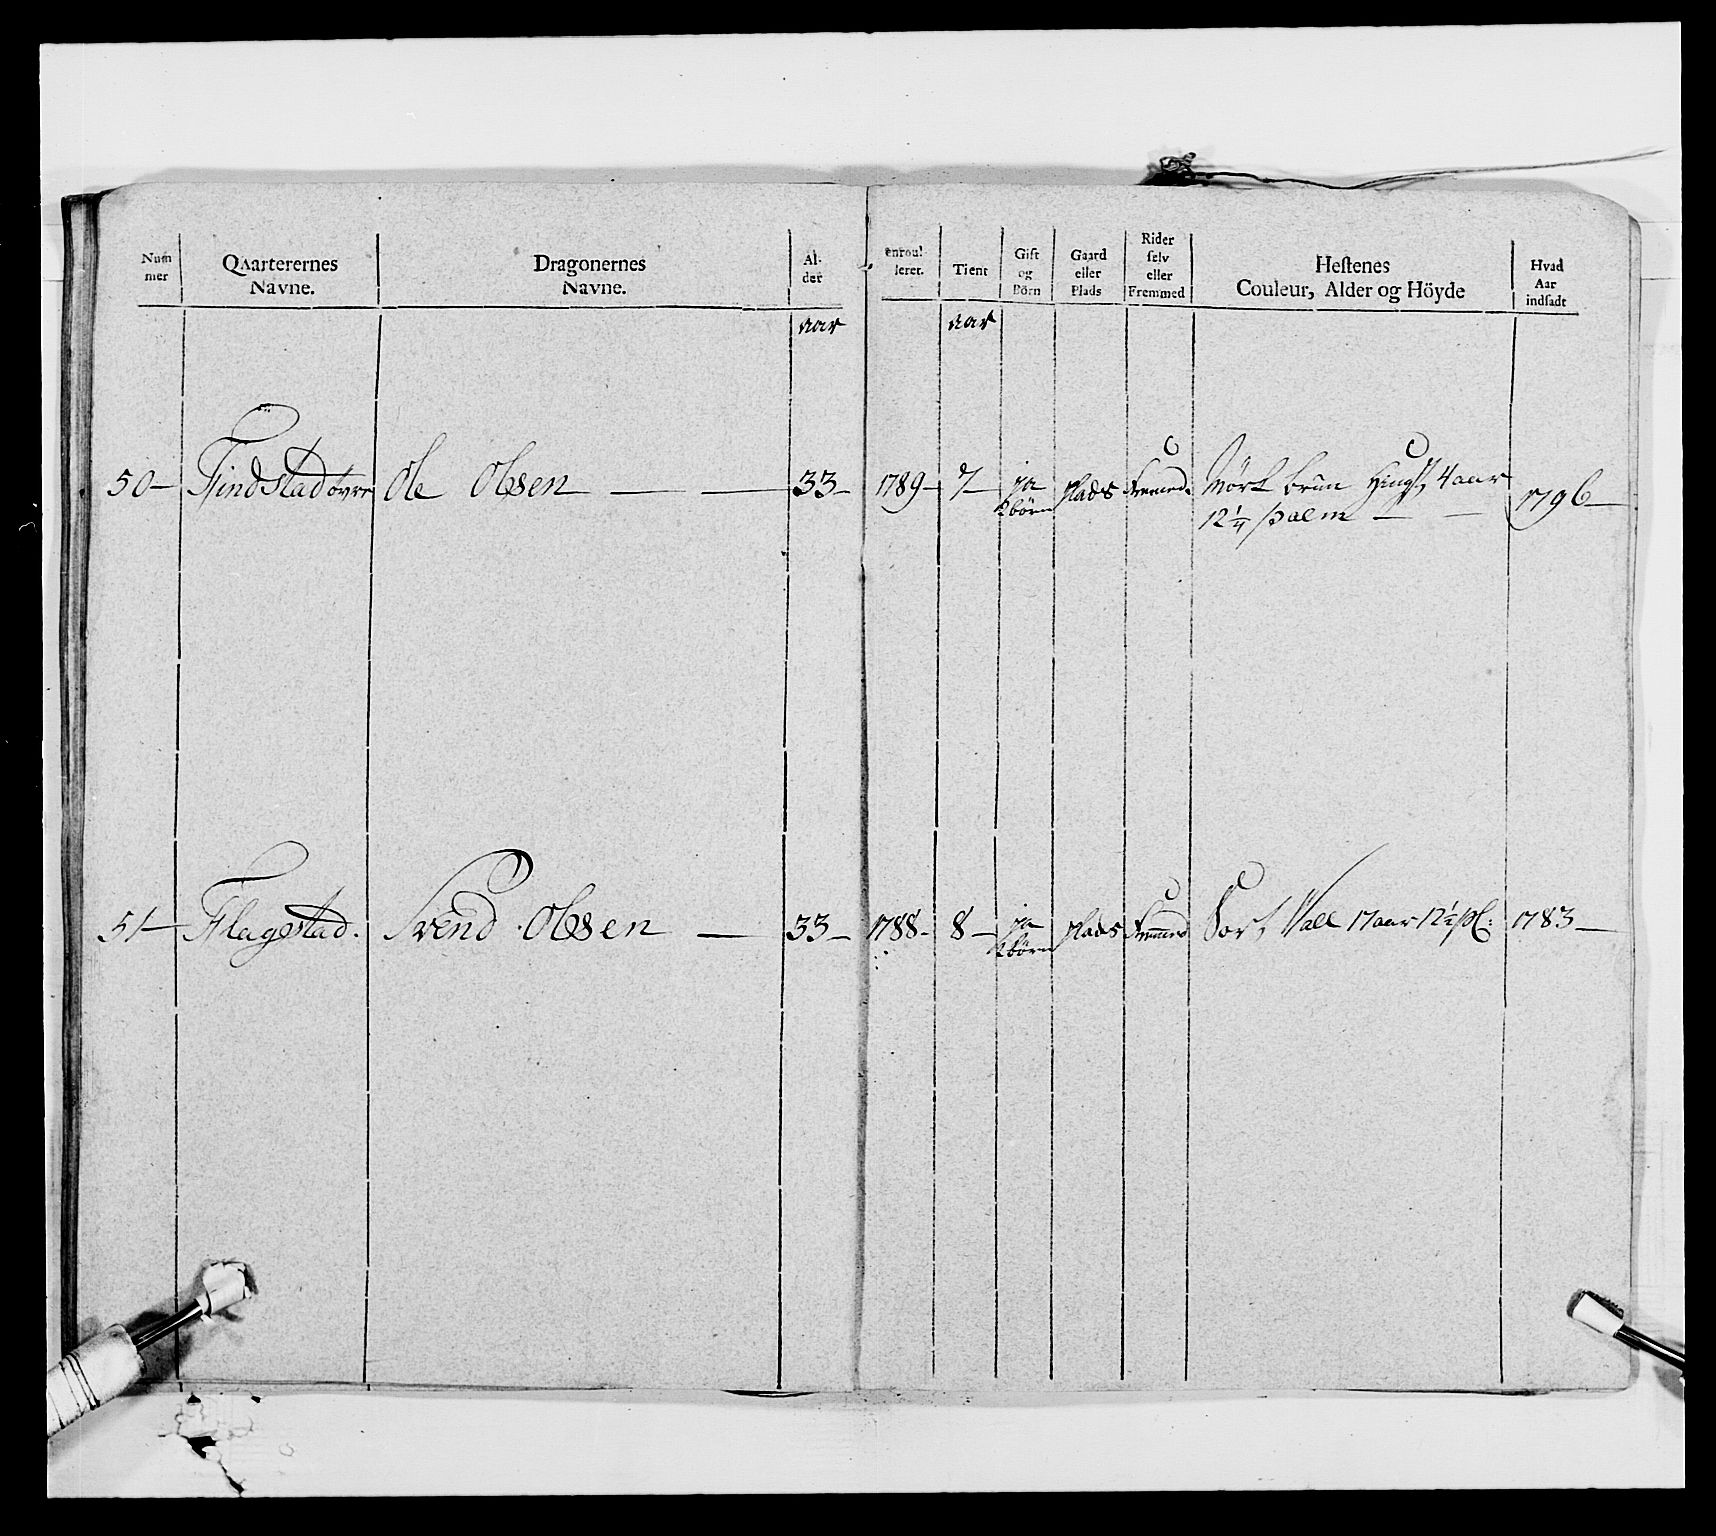 Num mer | QAarterernes Navne. | Dragonernes Navne. | Al- der | enroul- leret. | Tient | Gift og Börn | Gaard eller Plads | Rider selv eller Fremmed | Hestenes Couleur, Alder og Höyde | Hvad Aar indsadt
aar | aar
50 – Findstad övre | Ole Olsen – – | 33 – | 1789 – | 7 – | ja | plads | Fremed. | Mörk brun Hingst, 4 aar | 1796 –
2 börn | 12 1/4 palm –
51 – Flagestad. | Svend Olssen – | 33 – | 1788 – | 8 – | ja | plads | Fremmed | Sort Vall 17 aar 12 1/2 pl: | 1783 –
2 börn